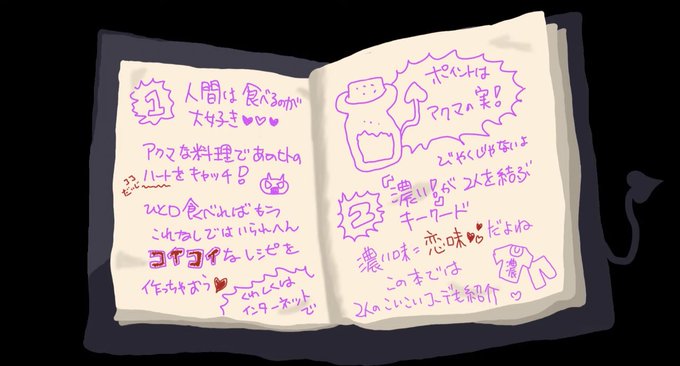 1
人間は 食べるのが
大好き♥♥♥
アクマな料理であの七人の
ハートをキャッチ!
ココ
だいじ
ひと口食べればもう
これなしではいられへん
コイコイなレシピを
作っちゃおう♥
くわしくは
インターネットで
ポイントは
アクマの実!
びやくじゃないよ
2
『濃い!』が2人を結ぶ
キーワード
濃い味=恋味♥♥だよね
この本では
2人のこいこいコーデも紹介♡
濃